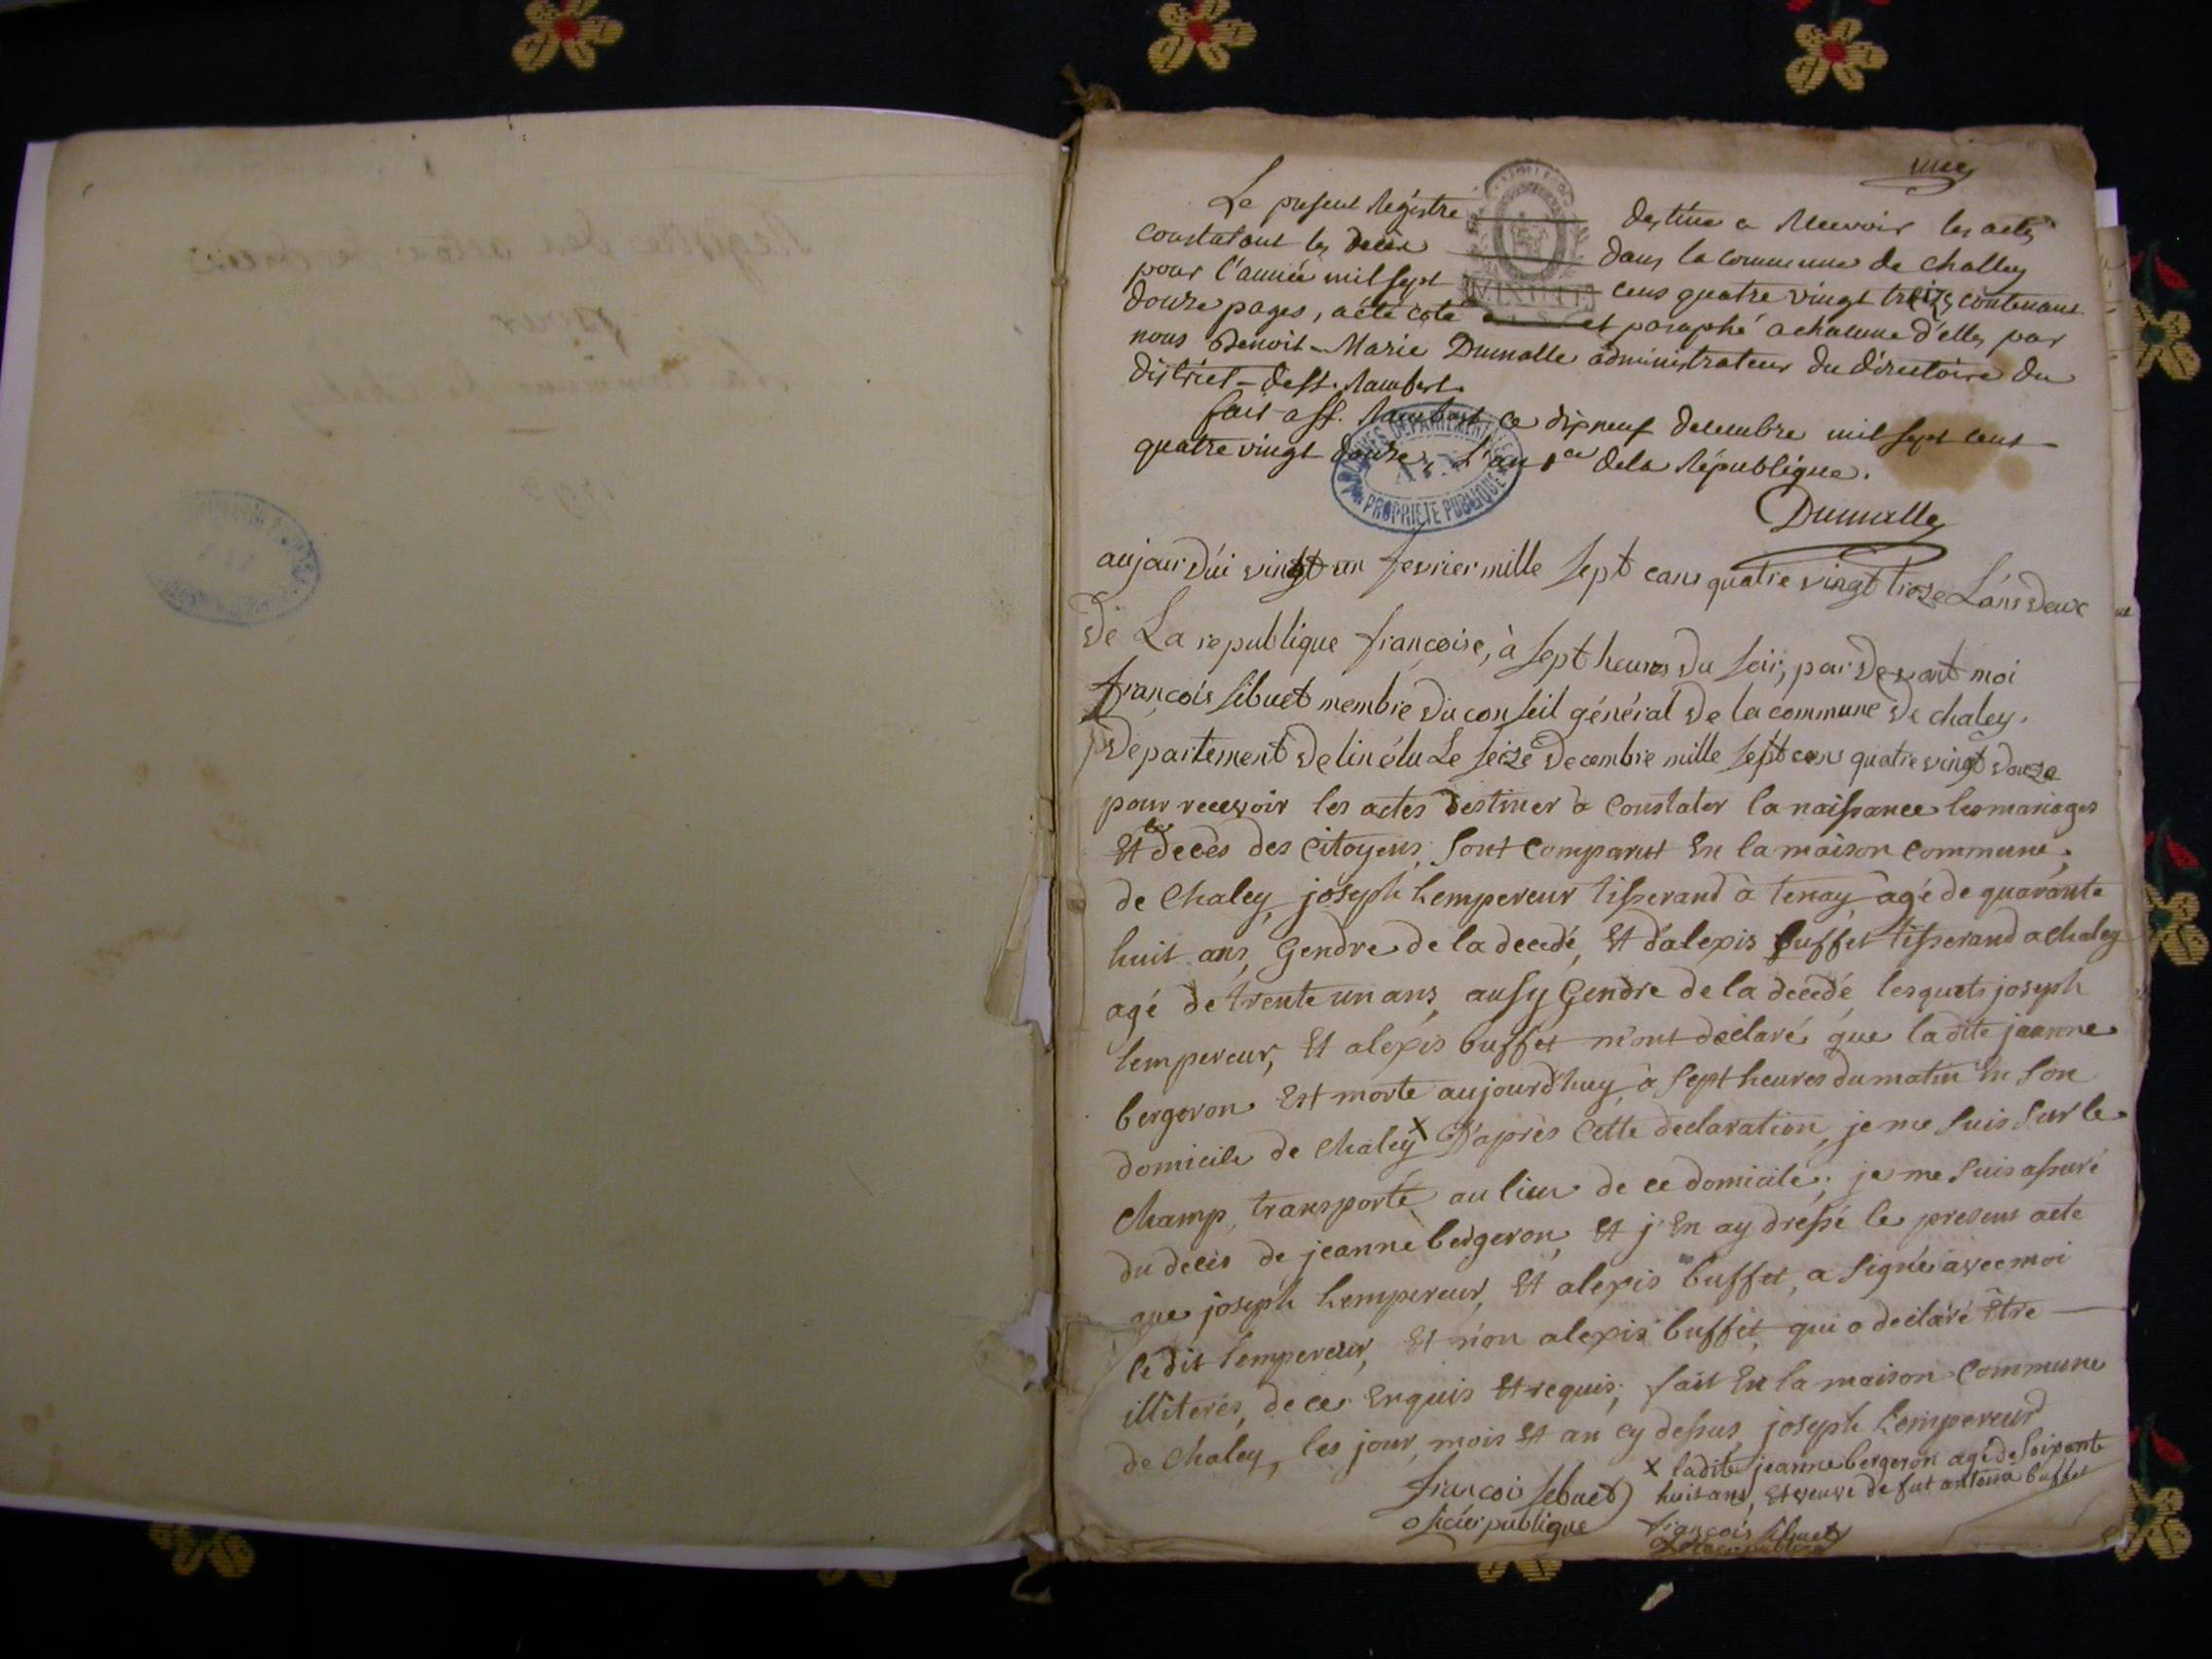 une
Le present Régistre destiné a Recevoir les actes
constatant les décès dans la commune de challey
pour l'année mil sept cens quatre vingt treize, contenant
MINUTE
douze pages, a été coté et paraphé a chacune d'elles par
nous Benoit-Marie Dumolle administrateur du directoire du
district de St. Rambert.
fait a St. Rambert ce dix neuf decembre mil sept cent
quatre vingt douze, L'an 1er dela République.
ARCHIVES DEPARTEMENTALES
AIN
PROPRIETE PUBLIQUE
Dumolle
aujourdúi vingt un fevrier mille sept cans quatre vingt treze L'ans deux
de La republique françoise, à sept heures du soir, par devant moi
françois sibuet membre du conseil général de la commune de chaley.
departement de lin élu Le seize decembre mille sept cens quatre vingt douze
pour recevoir les actes destiner à Constater la naissance les mariages
Et les decès des Citoyens, sont Comparut En la maison Commune,
de Chaley, joseph Lempereur tisserand à tenay, àgé de quarante
huit ans, Gendre de la decedé, Et d'alexis buffet tisserand a chaley
agé de trente un ans, ausy Gendre de la décedé, lesquels joseph
lempereur, Et alexis buffet m'ont déclaré que la dite jeanne
bergeron Est morte aujourdhuy, à sept heures du matin En son
domicile de Chaley X D'après Cette declaration, je me suis sur le
Champ, transporté au lieu de ce domicile, je me suis assuré
du décès de jeanne bergeron, Et j'En ay dressé le present acte
que joseph Lempereur, Et alexis buffet, a signé avec moi
le dit lempereur, Et non alexis buffet, qui a déclaré Etre
illiterés, de ce Enquis Et requis, fait En la maison Commune
de Chaley, les jour, mois Et an cy dessus, joseph Lempereur
X ladite jeanne bergeron agé de soixante
huit ans, Et veuve de fut antoine buffet
françois sibuet
oficier publique
françois sibuet